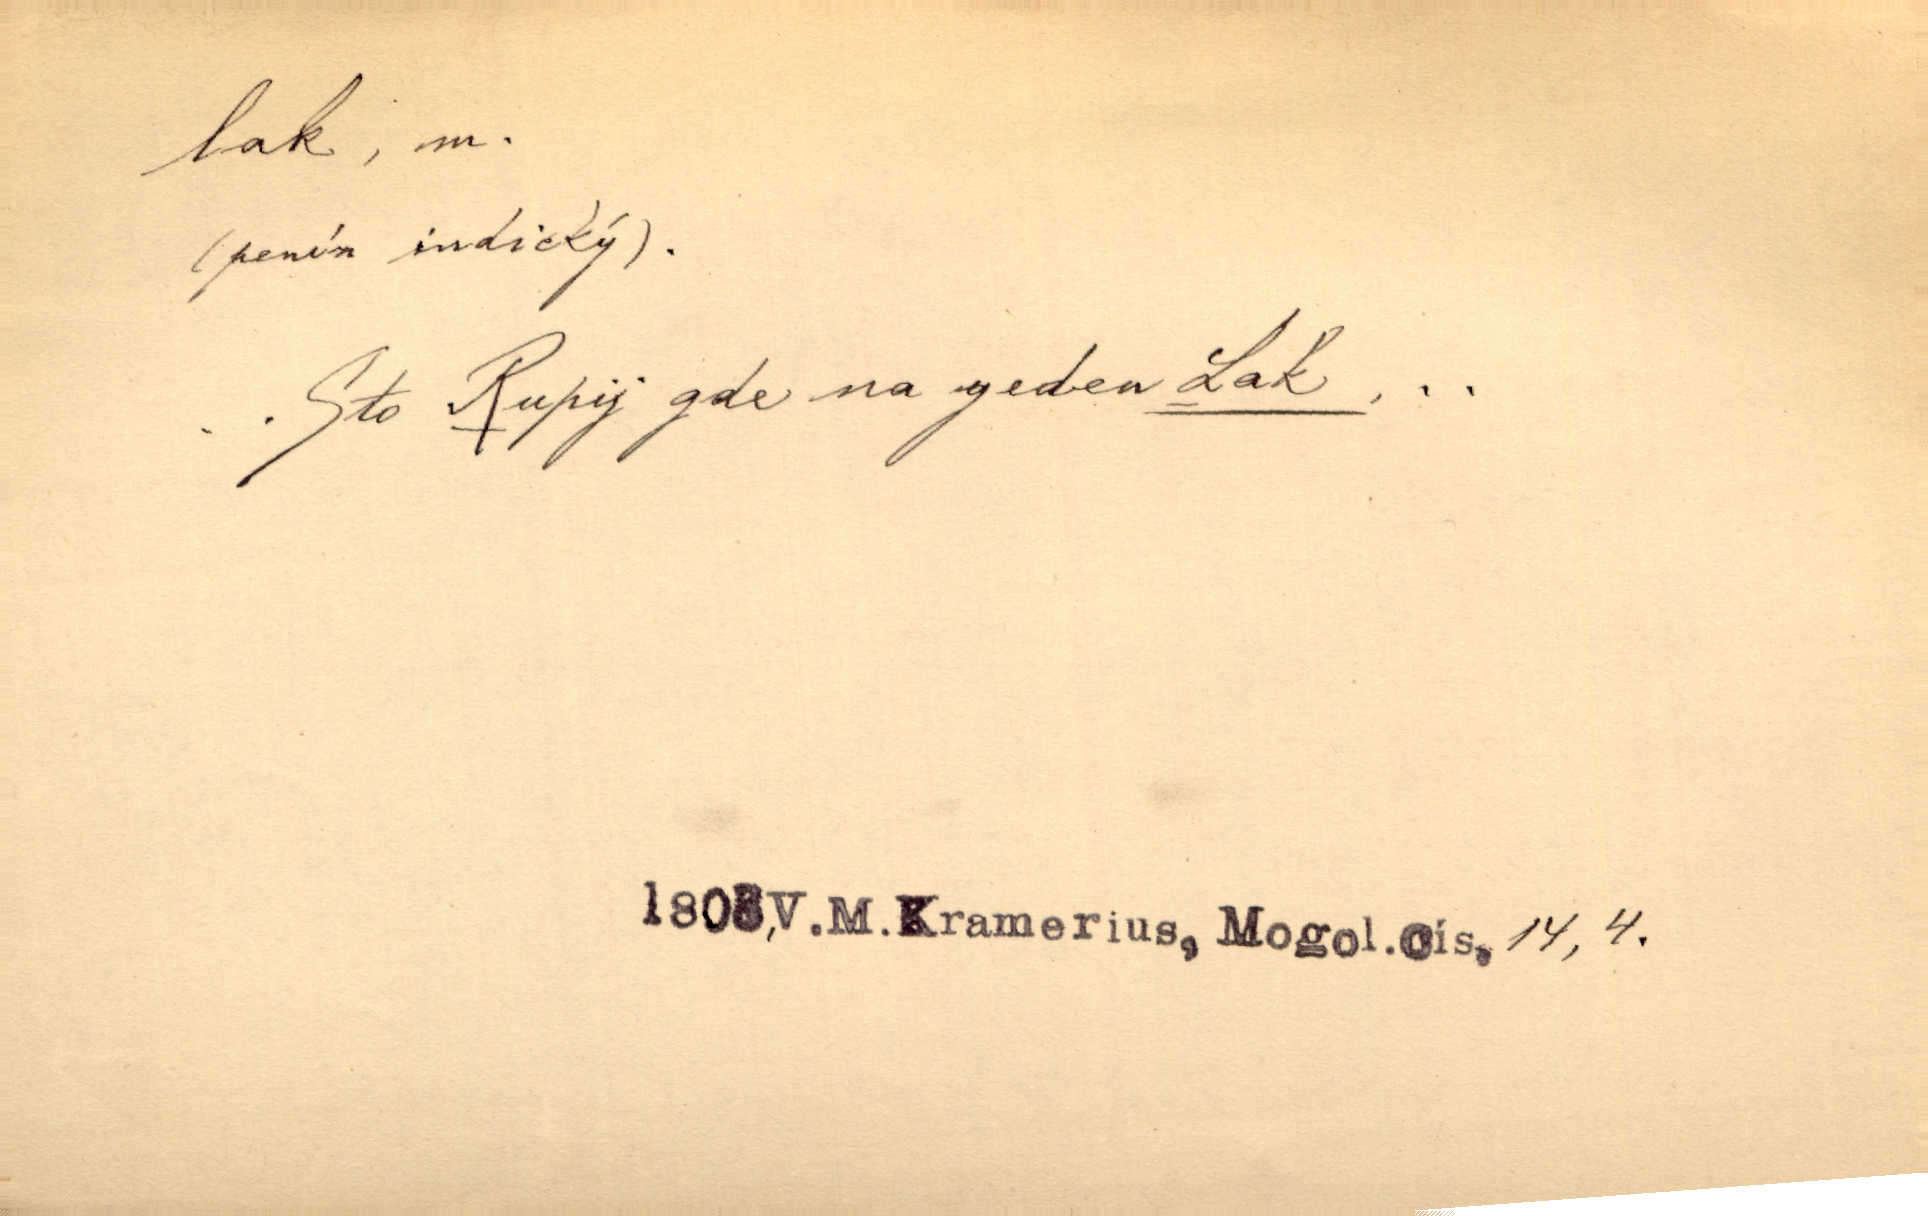 lak, m.
(peníz indický).
. . Sto Rupij gde na geden Lak, . .
1803, V.M.Kramerius, Mogol.cís, 14, 4.